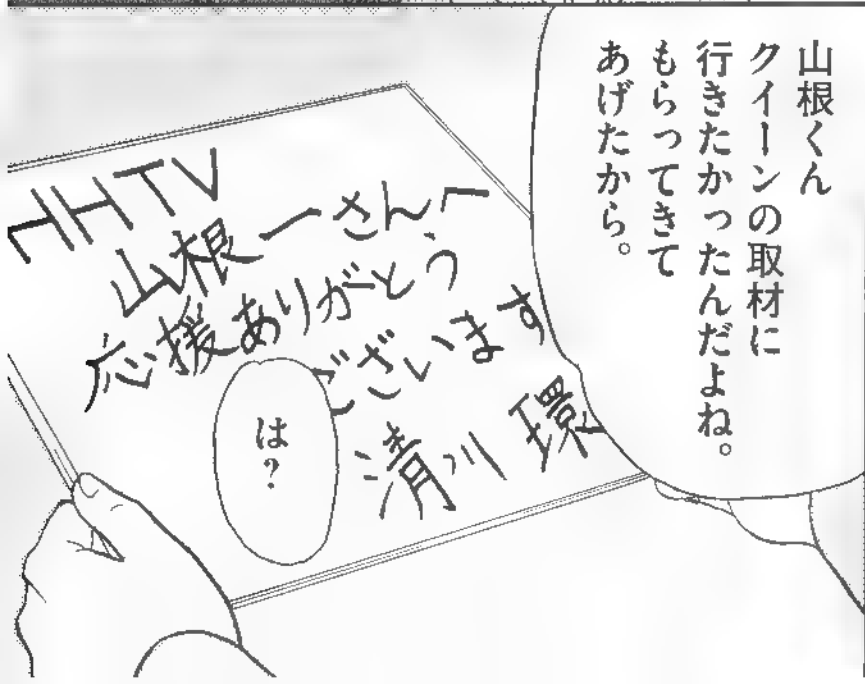 山根くん
クイーンの取材に
行きたかったんだよね。
もらってきて
あげたから。
HHTV
山根一さんへ
応援ありがとう
ございます
清川 環
は?